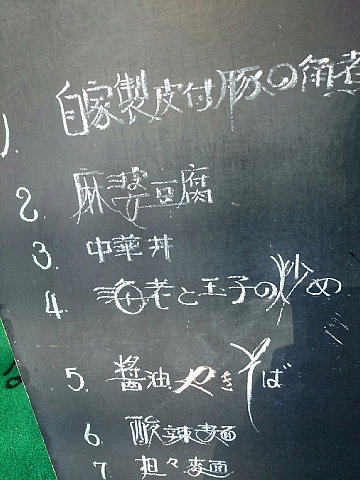 1. 自家製皮付豚の角煮
2. 麻婆豆腐
3. 中華丼
4. 海老と玉子の炒め
5. 醤油やきそば
6. 酸辣麺
7. 担々麺